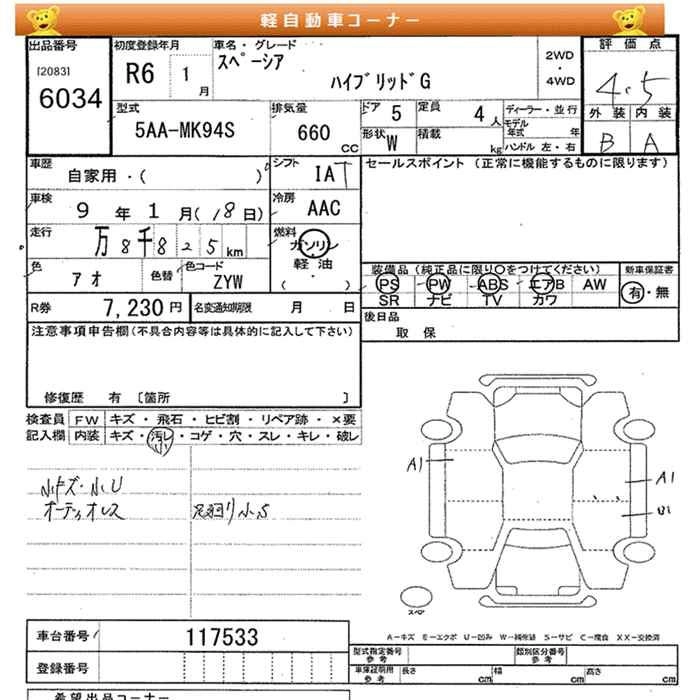 軽自動車コーナー
出品番号
[2083]
6034
初度登録年月
R6 1月
車名・グレード
スペーシア
ハイブリッドG
2WD
・
4WD
評価点
4.5
外装 内装
B A
型式
5AA-MK94S
排気量
660 CC
ドア 5
定員 4人
形状 W
積載 kg
ディーラー・並行
モデル年式 年
ハンドル 左・右
車歴
自家用・( )
シフト
IAT
車検
9年1月(18日)
冷房
AAC
走行
万8千825km
燃料
ガソリン
・
軽油
( )
色
アオ
色替
色コード
ZYW
R券
7,230円
名変通知期限 月 日
セールスポイント(正常に機能するものに限ります)
装備品(純正品に限り○をつけてください)
PS PW ABS エアB AW
SR ナビ TV カワ
新車保証書
有・無
後日品
取保
注意事項申告欄(不具合内容等は具体的に記入して下さい)
修復歴 有 〔箇所 〕
検査員記入欄
FW キズ・飛石・ヒビ割・リペア跡・×要
内装 キズ・汚レ・コゲ・穴・スレ・キレ・破レ
小
小キズ・小U
オーディオレス
足廻り小S
A1
A1
U1
スペア
A-キズ E-エクボ U-凹み W-補修跡 S-サビ C-腐食 XX-交換済
車台番号
117533
登録番号
型式指定番号
参考
類別区分番号
参考
車庫証明用
参考
長さ cm
幅 cm
高さ cm
希望出品コーナー